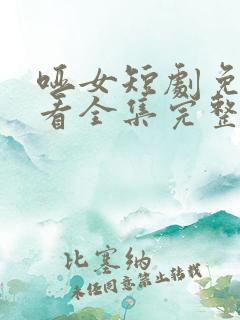 哑女短劇免
看全集完整
比塞纳
未经同意禁止转载